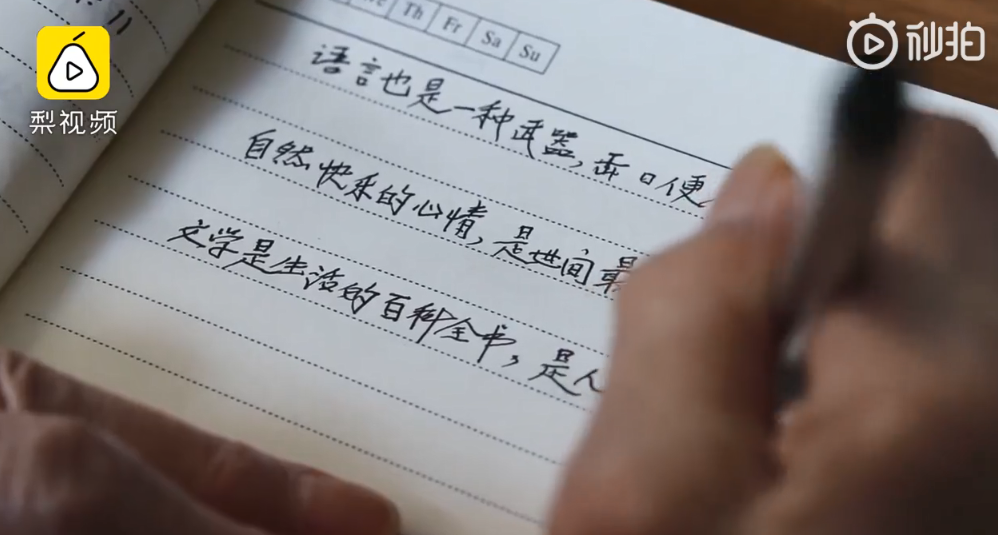 11
Th Fr Sa Su
秒拍
梨视频
语言也是一种武器,
自然快乐的心情,是世间最
文学是生活的百科全书,是人